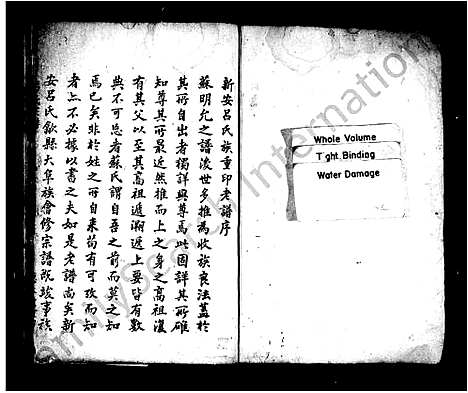 新安呂氏族重印老譜序
蘇明允之譜後世多推為收族良法蓋於
其所自出者獨詳與尊焉此固詳其所確
知尊其所最近然推而上之身之高祖復
有其父以至其高祖遞溯遞上要皆有數
典不可忘者蘇氏謂自吾之前而莫之知
焉已矣非於姓之所自来苟有可攷而知
者亦不必據以書之夫如是老譜尚矣新
安呂氏歙縣大阜族會修宗譜既竣事族
Whole Volume
Tight Binding
Water Damage
FamilySearch International